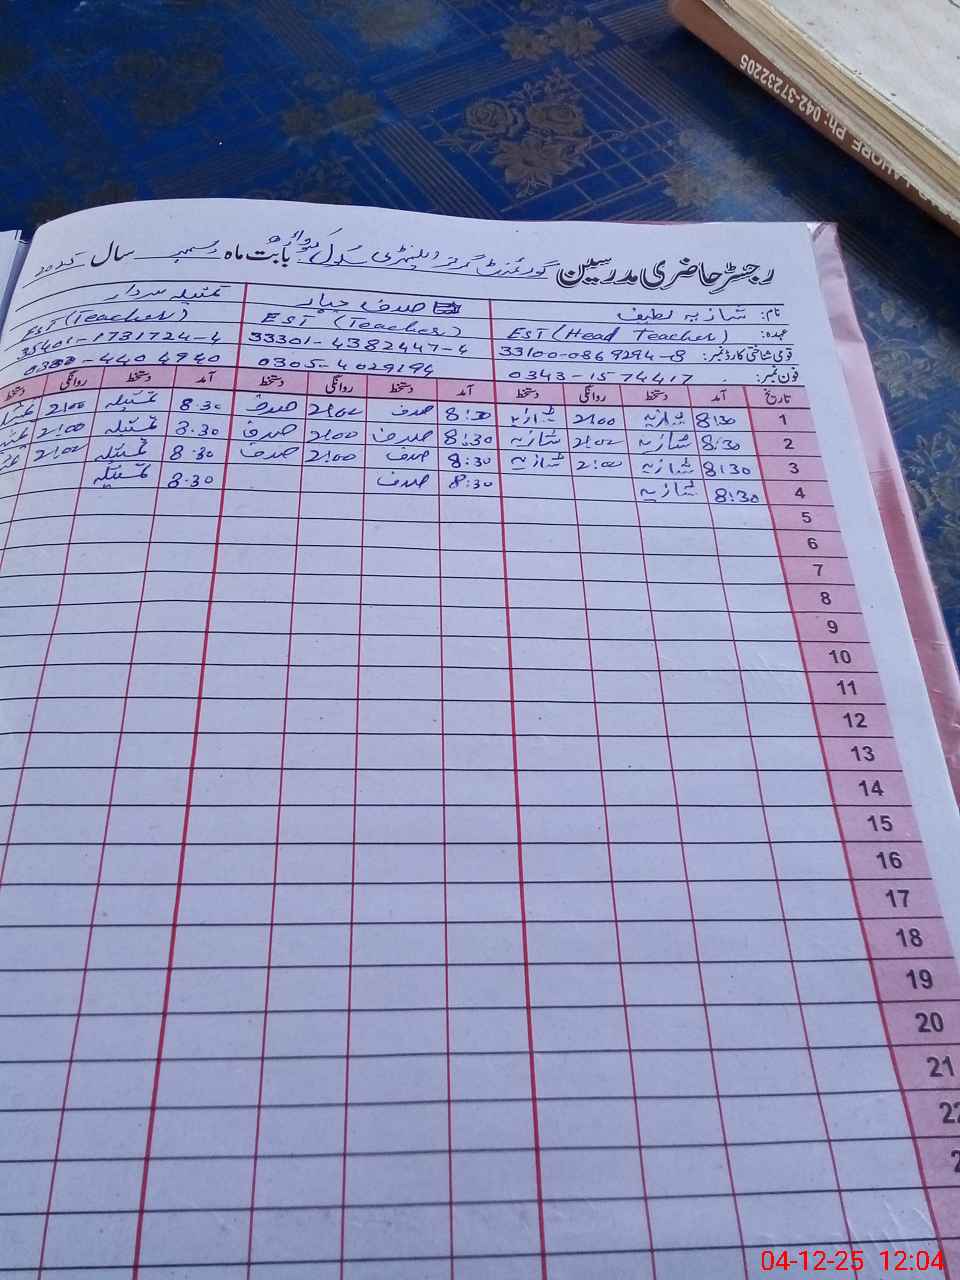 LAHORE Ph: 042-37232205
رجسٹر حاضری مدرسین گورنمنٹ گرلز ایلیمنٹری سکول بابت ماہ دسمبر سال 2025
نام: شازیہ لطیف صدف جبار تمثیلہ سردار
عہدہ: EST (Head Teacher) EST (Teacher) EST (Teacher)
قومی شناختی کارڈ نمبر: 33100-0869294-8 33301-4382447-4 35401-1731724-4
فون نمبر: 0343-1574417 0305-4029194 4404940
تاریخ آمد دستخط روانگی دستخط آمد دستخط روانگی دستخط آمد دستخط روانگی دستخط
1 8:30 شازیہ 2:00 شازیہ 8:30 صدف 2:00 صدف 8.30 تمثیلہ 2:00
2 8:30 شازیہ 2:00 شازیہ 8:30 صدف 2:00 صدف 8.30 تمثیلہ 2:00
3 8:30 شازیہ 2:00 شازیہ 8:30 صدف 2:00 صدف 8.30 تمثیلہ 2:00
4 8:30 شازیہ 8:30 صدف 8.30 تمثیلہ
5
6
7
8
9
10
11
12
13
14
15
16
17
18
19
20
21
22
04-12-25 12:04